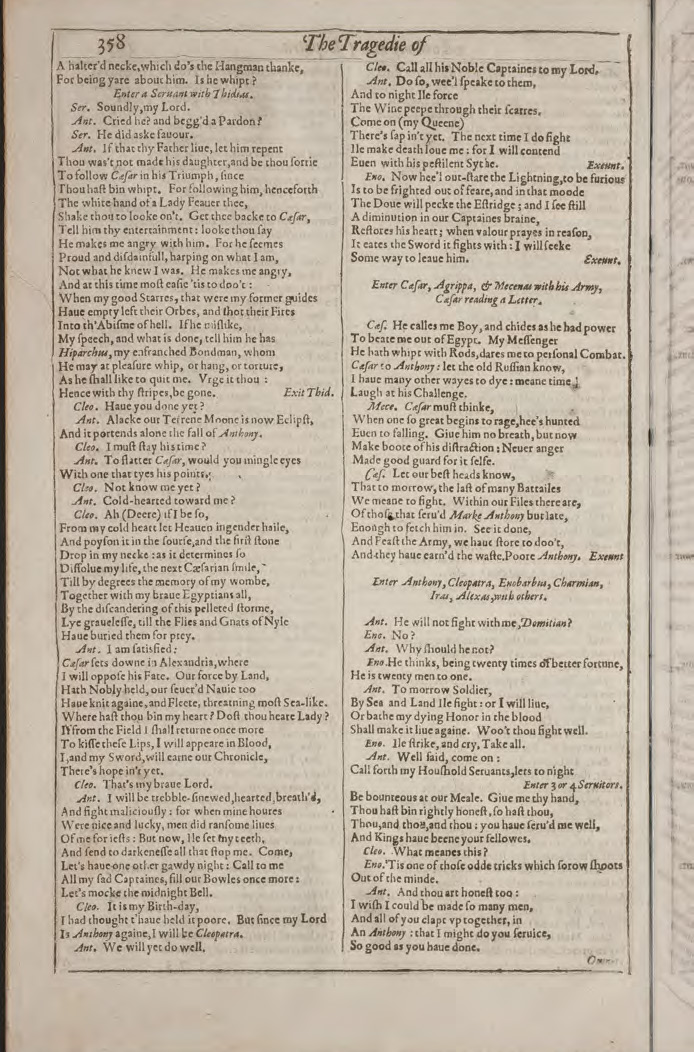 358
The Tragedie of
A halter'd necke, which do's the Hangman thanke,
For being yare about him. Is he whipt?
Enter a Seruant with Thidias.
Ser. Soundly, my Lord.
Ant. Cried he? and begg'd a Pardon?
Ser. He did aske fauour.
Ant. If that thy Father liue, let him repent
Thou was't not made his daughter, and be thou sorrie
To follow Cæsar in his Triumph, since
Thou hast bin whipt. For following him, henceforth
The white hand of a Lady Feauer thee,
Shake thou to looke on't. Get thee backe to Cæsar,
Tell him thy entertainment: looke thou say
He makes me angry with him. For he seemes
Proud and disdainfull, harping on what I am,
Not what he knew I was. He makes me angry,
And at this time most easie 'tis to doo't:
When my good Starres, that were my former guides
Haue empty left their Orbes, and shot their Fires
Into th'Abisme of hell. If he mislike,
My speech, and what is done, tell him he has
Hiparchus, my enfranched Bondman, whom
He may at pleasure whip, or hang, or torture,
As he shall like to quit me. Vrge it thou:
Hence with thy stripes, be gone. Exit Thid.
Cleo. Haue you done yet?
Ant. Alacke our Terrene Moone is now Eclipst,
And it portends alone the fall of Anthony.
Cleo. I must stay his time?
Ant. To flatter Cæsar, would you mingle eyes
With one that tyes his points.
Cleo. Not know me yet?
Ant. Cold-hearted toward me?
Cleo. Ah (Deere) if I be so,
From my cold heart let Heauen ingender haile,
And poyson it in the sourse, and the first stone
Drop in my necke: as it determines so
Dissolue my life, the next Cæsarian smile,
Till by degrees the memory of my wombe,
Together with my braue Egyptians all,
By the discandering of this pelleted storme,
Lye grauelesse, till the Flies and Gnats of Nyle
Haue buried them for prey.
Ant. I am satisfied:
Cæsar sets downe in Alexandria, where
I will oppose his Fate. Our force by Land,
Hath Nobly held, our seuer'd Nauie too
Haue knit againe, and Fleete, threatning most Sea-like.
Where hast thou bin my heart? Dost thou heare Lady?
If from the Field I shall returne once more
To kisse these Lips, I will appeare in Blood,
I, and my Sword, will earne our Chronicle,
There's hope in't yet.
Cleo. That's my braue Lord.
Ant. I will be trebble-sinewed, hearted, breath'd,
And fight maliciously: for when mine houres
Were nice and lucky, men did ransome liues
Of me for iests: But now, Ile set my teeth,
And send to darkenesse all that stop me. Come,
Let's haue one other gawdy night: Call to me
All my sad Captaines, fill our Bowles once more:
Let's mocke the midnight Bell.
Cleo. It is my Birth-day,
I had thought t'haue held it poore. But since my Lord
Is Anthony againe, I will be Cleopatra.
Ant. We will yet do well.
Cleo. Call all his Noble Captaines to my Lord.
Ant. Do so, wee'l speake to them,
And to night Ile force
The Wine peepe through their scarres.
Come on (my Queene)
There's sap in't yet. The next time I do fight
Ile make death loue me: for I will contend
Euen with his pestilent Sythe. Exeunt.
Eno. Now hee'l out-stare the Lightning, to be furious
Is to be frighted out of feare, and in that moode
The Doue will pecke the Estridge; and I see still
A diminution in our Captaines braine,
Restores his heart; when valour prayes in reason,
It eates the Sword it fights with: I will seeke
Some way to leaue him. Exeunt.
Enter Cæsar, Agrippa, & Mecenas with his Army,
Cæsar reading a Letter.
Cæs. He calles me Boy, and chides as he had power
To beate me out of Egypt. My Messenger
He hath whipt with Rods, dares me to personal Combat.
Cæsar to Anthony: let the old Ruffian know,
I haue many other wayes to dye: meane time
Laugh at his Challenge.
Mece. Cæsar must thinke,
When one so great begins to rage, hee's hunted
Euen to falling. Giue him no breath, but now
Make boote of his distraction: Neuer anger
Made good guard for it selfe.
Cæs. Let our best heads know,
That to morrow, the last of many Battailes
We meane to fight. Within our Files there are,
Of those that seru'd Marke Anthony but late,
Enough to fetch him in. See it done,
And Feast the Army, we haue store to doo't,
And they haue earn'd the waste. Poore Anthony. Exeunt
Enter Anthony, Cleopatra, Enobarbus, Charmian,
Iras, Alexas, with others.
Ant. He will not fight with me, Domitian?
Eno. No?
Ant. Why should he not?
Eno. He thinks, being twenty times of better fortune,
He is twenty men to one.
Ant. To morrow Soldier,
By Sea and Land Ile fight: or I will liue,
Or bathe my dying Honor in the blood
Shall make it liue againe. Woo't thou fight well.
Eno. Ile strike, and cry, Take all.
Ant. Well said, come on:
Call forth my Houshold Seruants, lets to night
Enter 3 or 4 Seruitors.
Be bounteous at our Meale. Giue me thy hand,
Thou hast bin rightly honest, so hast thou,
Thou, and thou, and thou: you haue seru'd me well,
And Kings haue beene your fellowes.
Cleo. What meanes this?
Eno. 'Tis one of those odde tricks which sorow shoots
Out of the minde.
Ant. And thou art honest too:
I wish I could be made so many men,
And all of you clapt vp together, in
An Anthony: that I might do you seruice,
So good as you haue done.